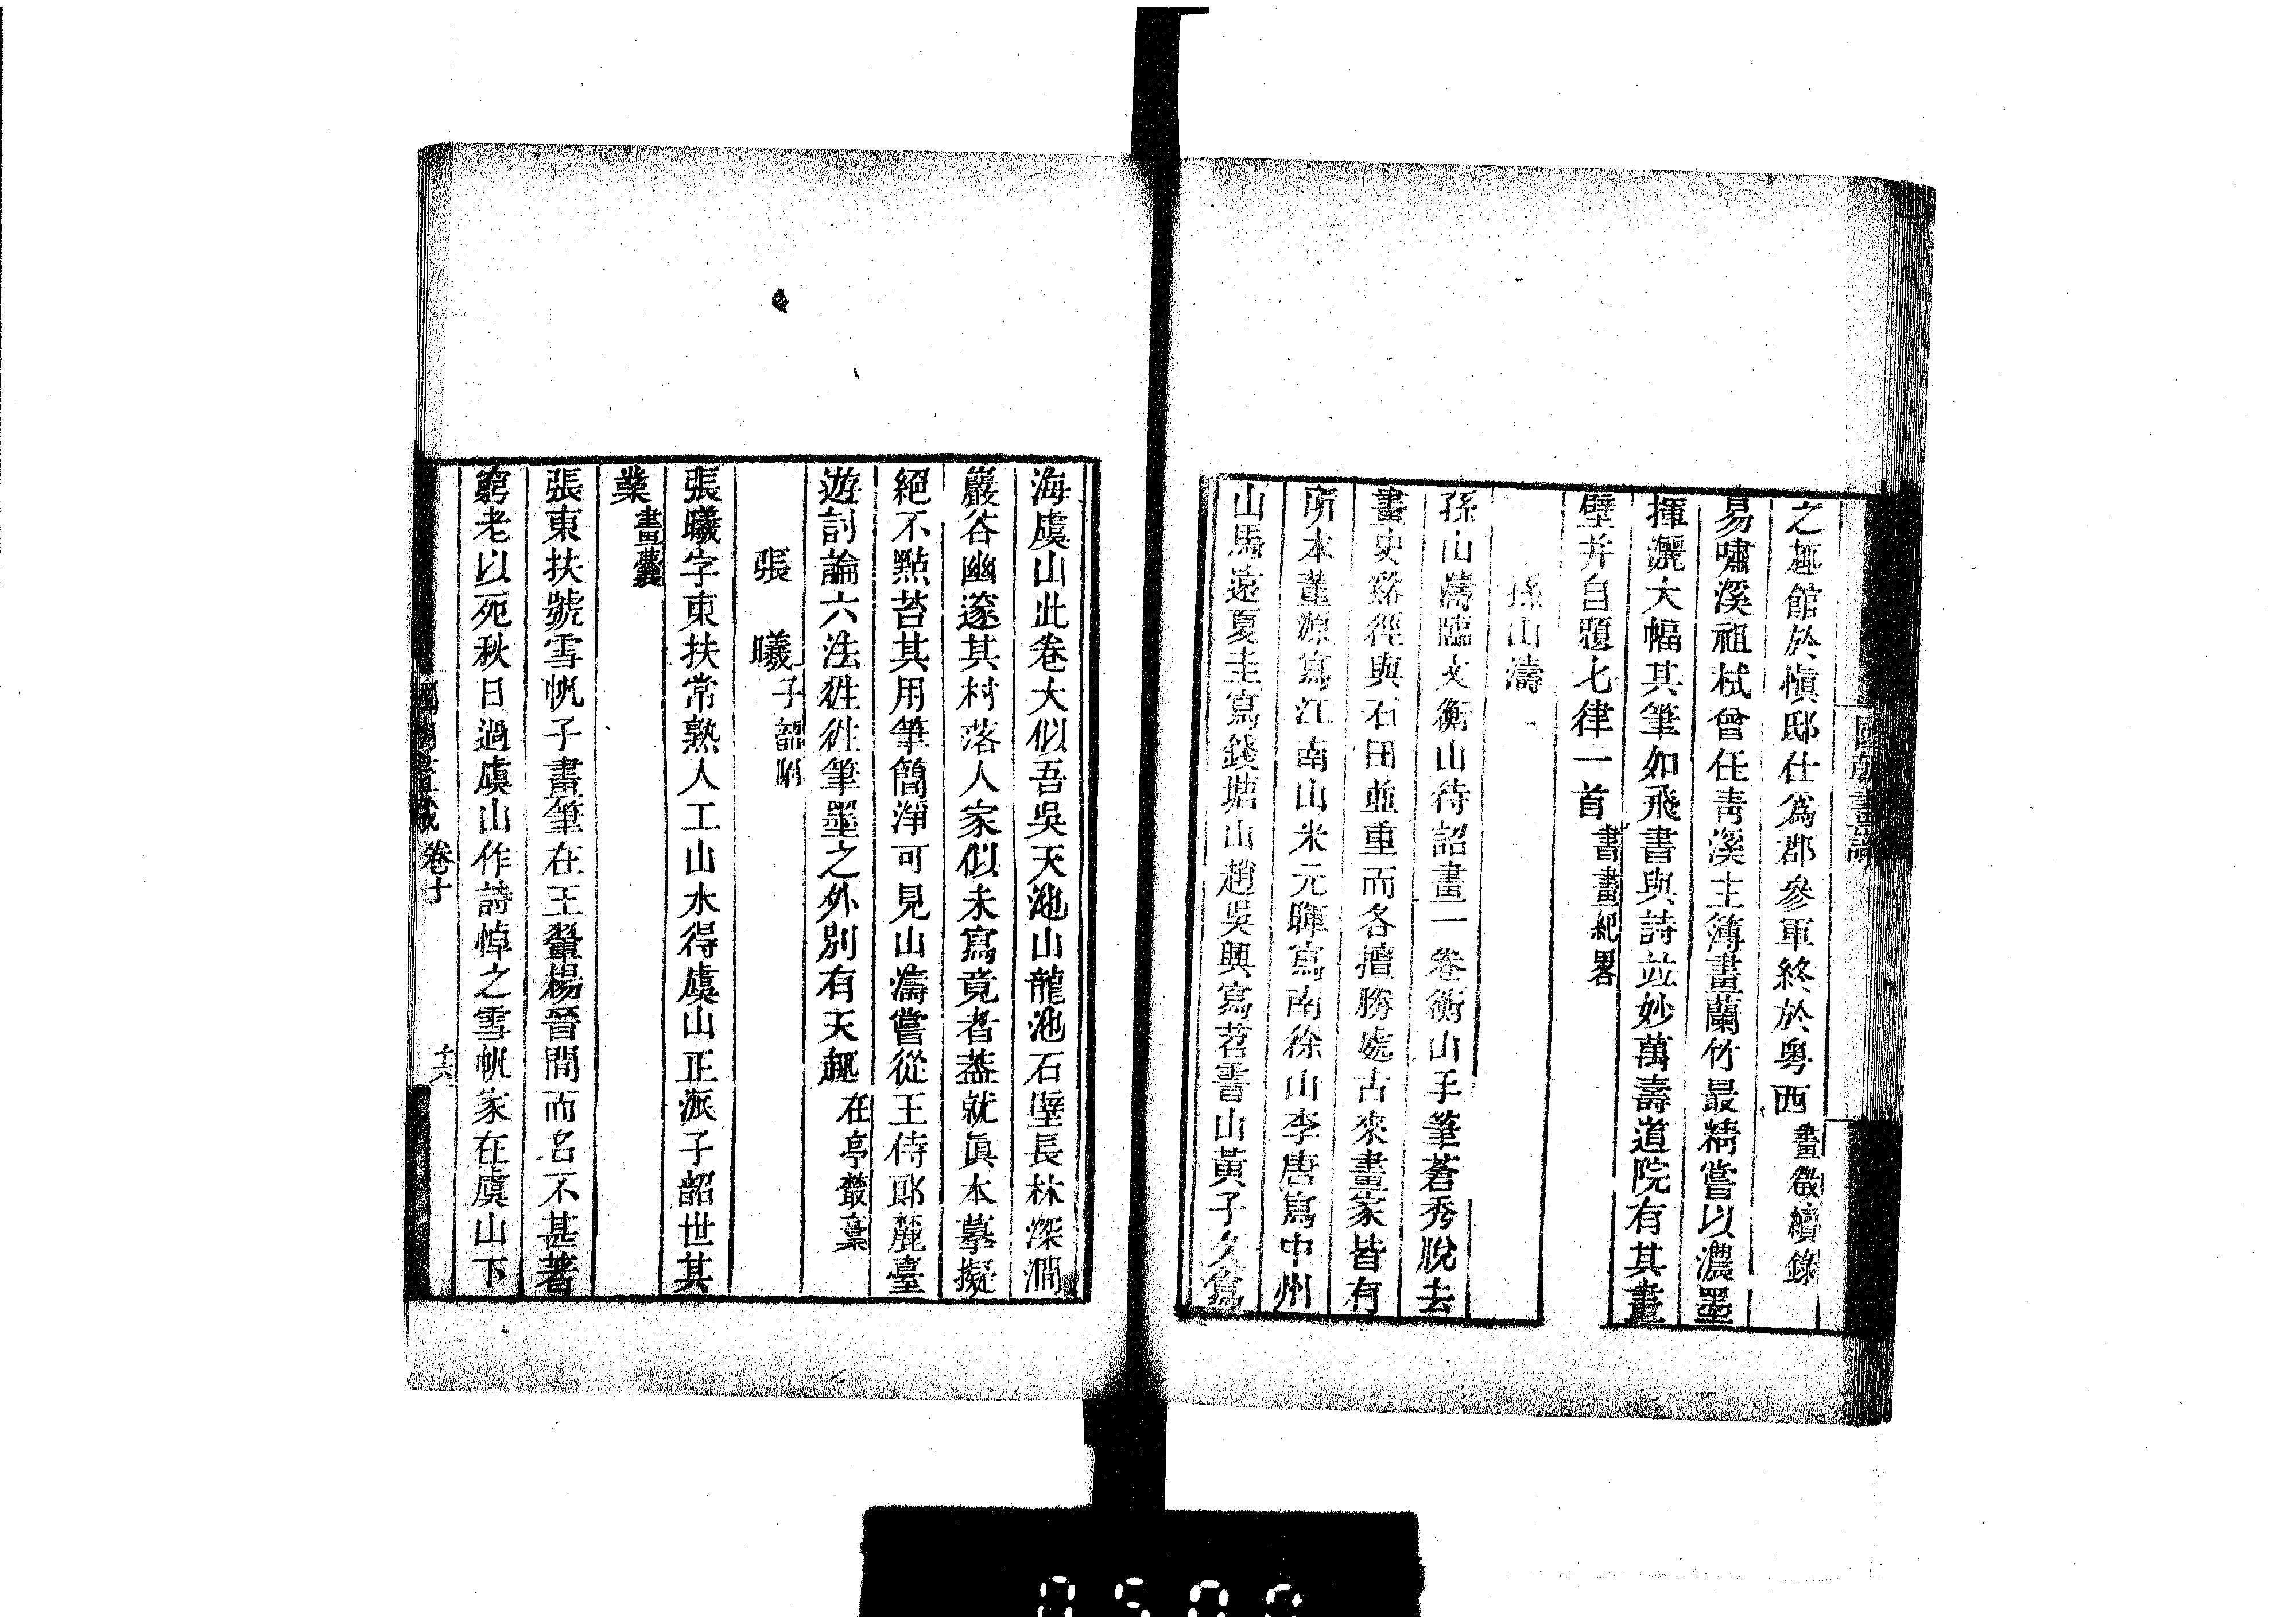 國朝畫識
之極館於愼邸仕爲郡參軍終於粤西畫徵續錄
易嘯溪祖栻曾任靑溪主簿畫蘭竹最精嘗以濃墨
揮灑大幅其筆如飛書與詩竝妙萬壽道院有其畫
壁并自題七律一首書畫紀畧
孫山濤
孫山濤臨文衡山待詔畫一卷衡山手筆蒼秀脫去
畫史谿徑與石田並重而各擅勝處古來畫家皆有
所本董源寫江南山米元暉寫南徐山李唐寫中州
山馬遠夏圭寫錢塘山趙吳興寫苕霅山黃子久寫
海虞山此卷大似吾吳天池山龍池石壁長林深澗
巖谷幽邃其村落人家似未寫竟者葢就眞本摹擬
絕不點苔其用筆簡淨可見山濤嘗從王侍郎麓臺
遊討論六法徃徃筆墨之外別有天趣在亭叢稾
張曦子韶附
張曦字東扶常熟人工山水得虞山正派子韶世其
業畫囊
張東扶號雪帆子畫筆在王翬楊晉間而名不甚著
窮老以死秋日過虞山作詩悼之雪帆家在虞山下
國朝畫識 卷十 十六